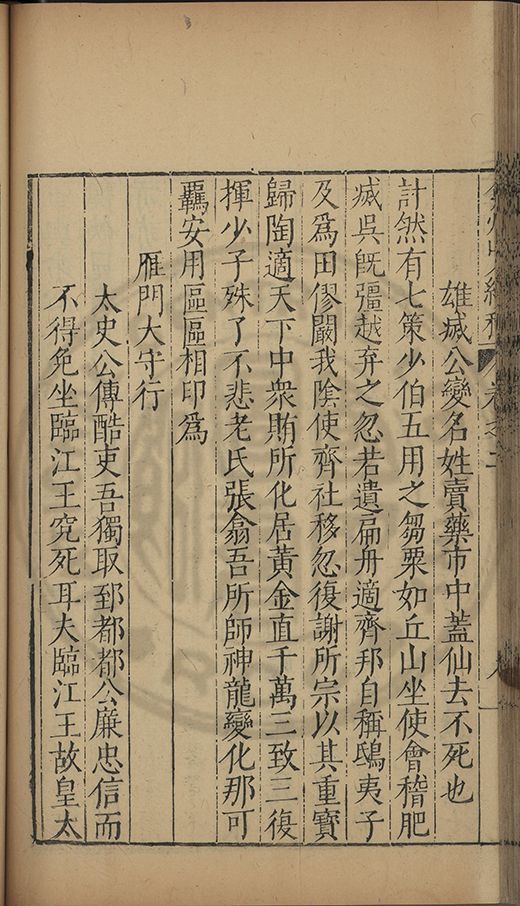 雄滅公變名姓賣藥市中蓋仙去不死也
計然有七策少伯五用之芻粟如丘山坐使會稽肥
滅吳旣彊越弃之忽若遺扁舟適齊邦自稱鴟夷子
及爲田僇闞我陰使齊社移忽復謝所宗以其重寶
歸陶適天下中衆賄所化居黃金直千萬三致三復
揮少子殊了不悲老氏張翕吾所師神龍變化那可
羈安用區區相印爲
雁門大守行
太史公傳酷吏吾獨取郅都都公廉忠信而
不得免坐臨江王究死耳夫臨江王故皇太